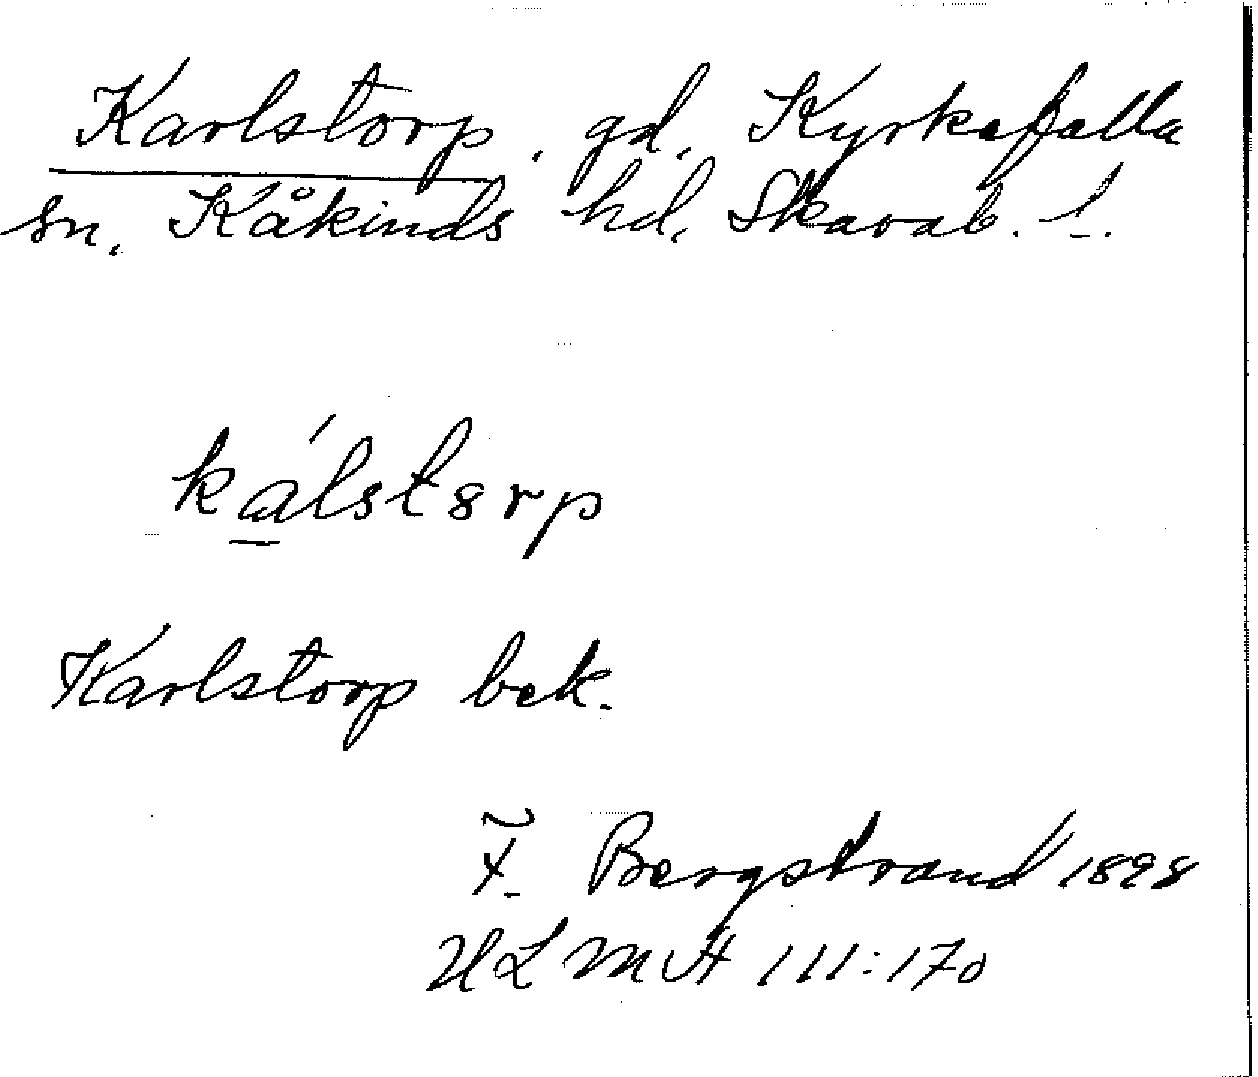 Karlstorp, gd, Kyrkefalla
sn, Kåkinds hd, Skarab. l.
kálstorp
Karlstorp bek.
F. Bergstrand 1898
ULMA 111:170